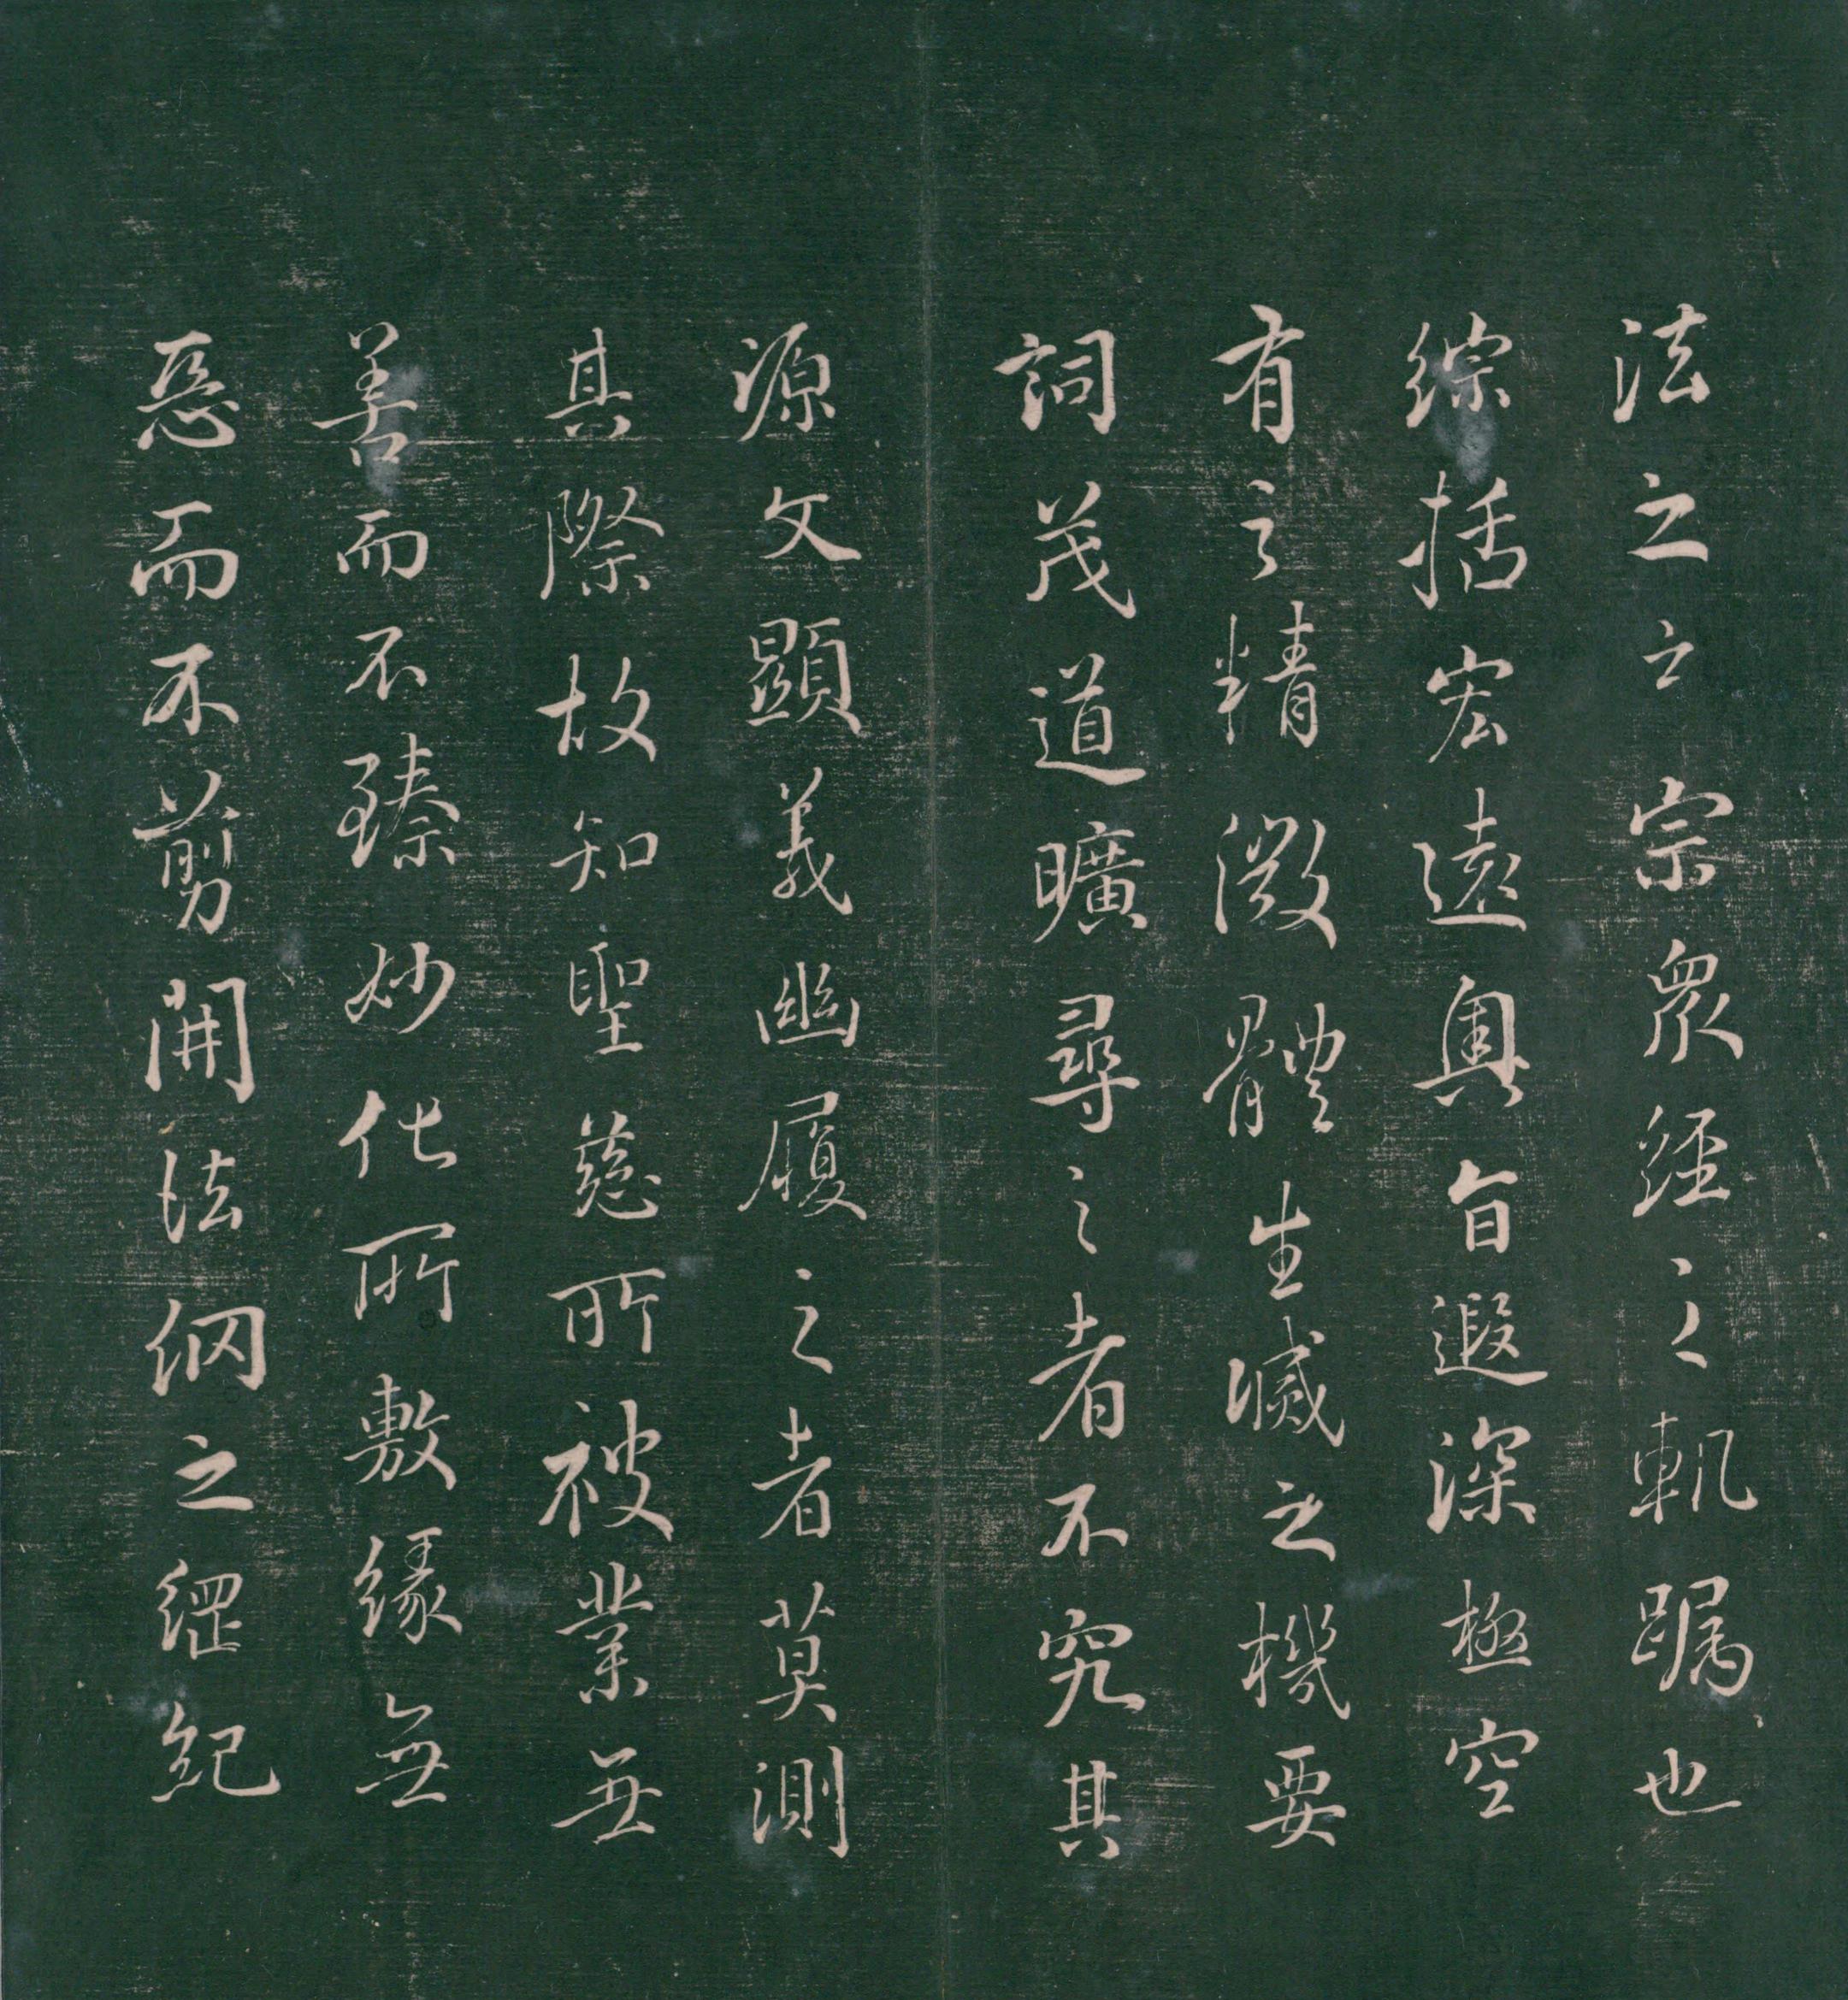 法之之宗衆經之軌躅也
綜括宏遠奧旨遐深極空
有之精微體生滅之機要
詞茂道曠尋之者不究其
源文顯義幽履之者莫測
其際故知聖慈所被業無
善而不臻妙化所敷緣無
惡而不剪開法網之綱紀